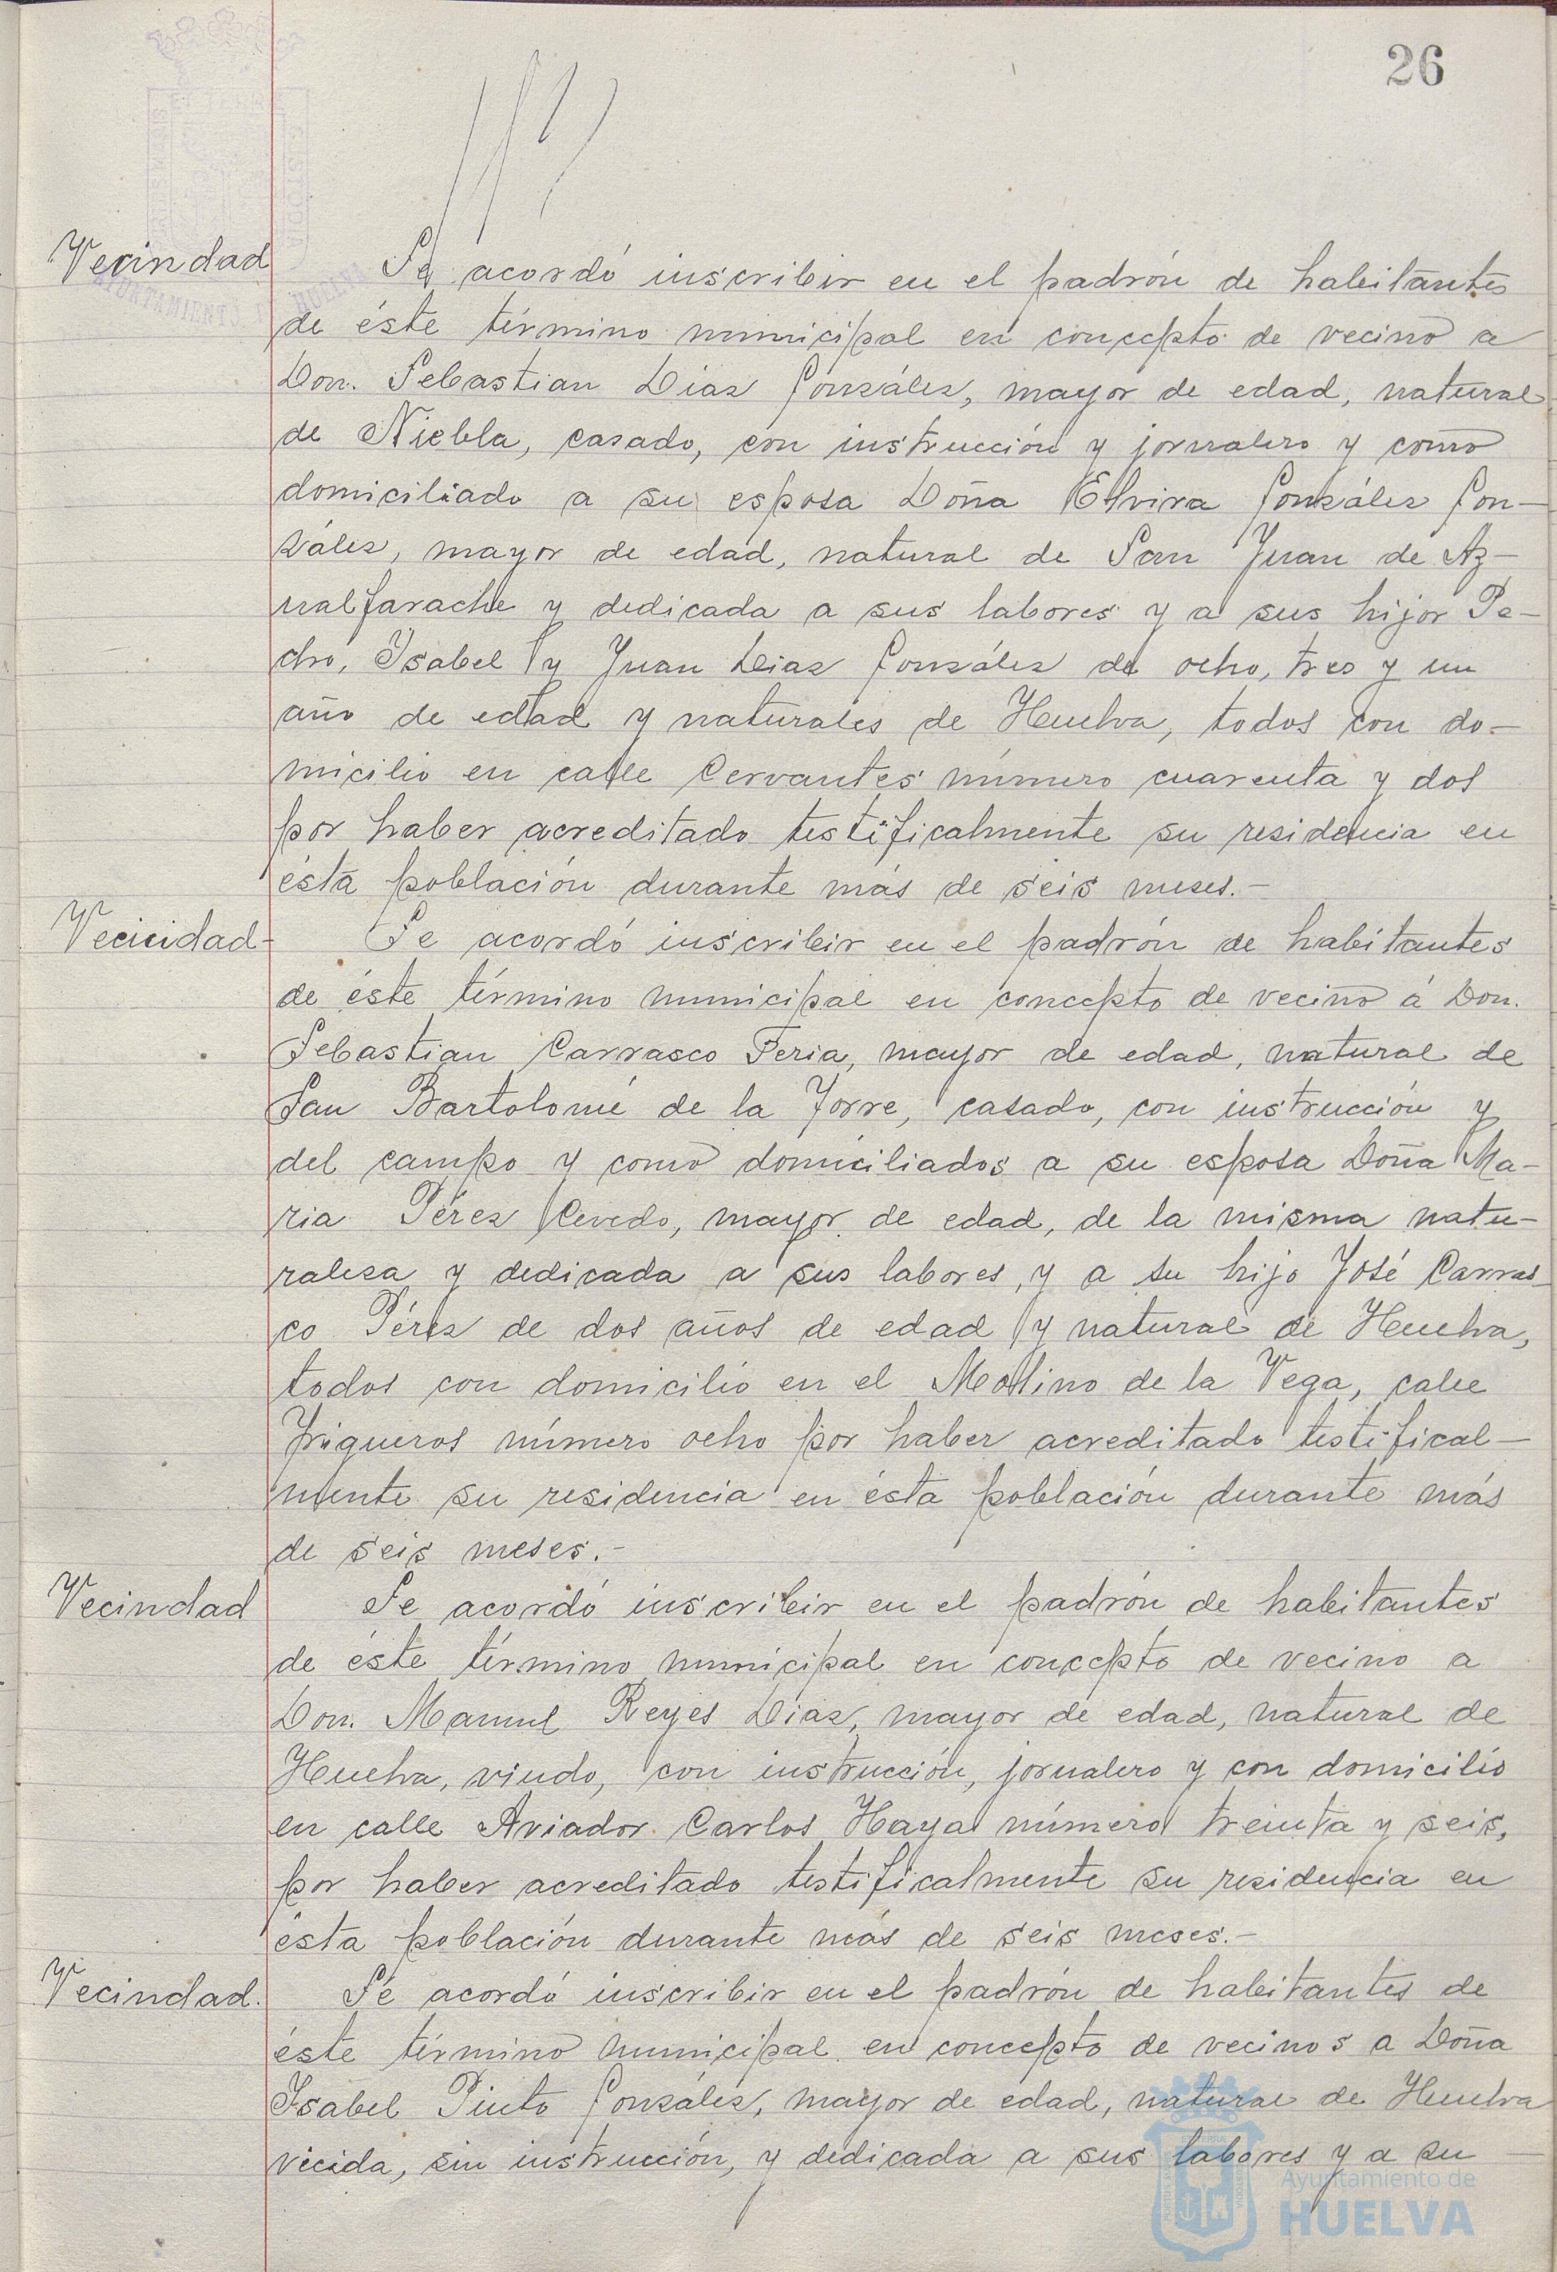 26
Vecindad
Se acordó inscribir en el padrón de habitantes
de éste término municipal en concepto de vecino a
Don. Sebastian Diaz González, mayor de edad, natural
de Niebla, casado, con instrucción y jornalero y como
domiciliado a su esposa Doña Elvira González Gon-
zález, mayor de edad, natural de San Juan de Az-
nalfarache y dedicada a sus labores y a sus hijos Pe-
dro, Isabel y Juan Diaz González de ocho, tres y un
año de edad y naturales de Huelva, todos con do-
micilio en calle Cervantes número cuarenta y dos
por haber acreditado testificalmente su residencia en
ésta población durante más de seis meses.-
Vecindad-
Se acordó inscribir en el padrón de habitantes
de éste término municipal en concepto de vecino á Don.
Sebastian Carrasco Feria, mayor de edad, natural de
San Bartolomé de la Torre, casado, con instrucción y
del campo y como domiciliados a su esposa Doña Ma-
ria Pérez mayor de edad, de la misma natu-
raleza y dedicada a sus labores, y a su hijo José Carras-
co Pérez de dos años de edad y natural de Huelva,
todos con domicilio en el Molino de la Vega, calle
Trigueros número ocho por haber acreditado testifical-
mente su residencia en ésta población durante más
de seis meses.-
Vecindad
Se acordó inscribir en el padrón de habitantes
de éste término municipal en concepto de vecino a
Don. Manuel Reyes Diaz, mayor de edad, natural de
Huelva, viudo, con instrucción, jornalero y con domicilio
en calle Aviador Carlos Haya número treinta y seis,
por haber acreditado testificalmente su residencia en
ésta población durante más de seis meses.-
Vecindad.
Se acordó inscribir en el padrón de habitantes de
éste término municipal en concepto de vecinos a Doña
Isabel Pinto González, mayor de edad, natural de Huelva
sin instrucción, y dedicada a sus labores y a su
Ayuntamiento de
HUELVA